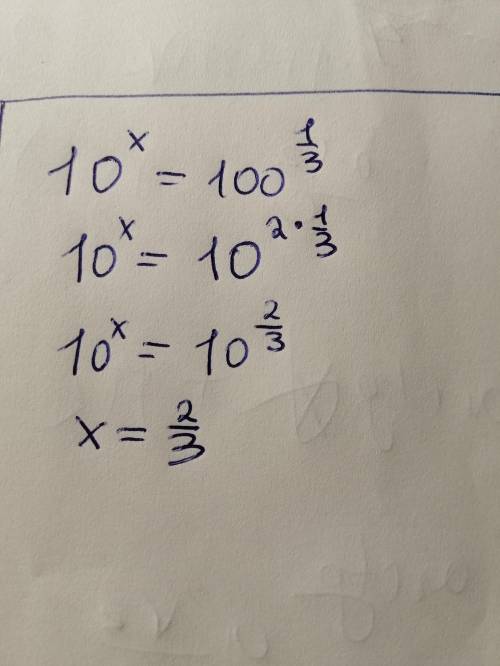 10^x = 100^(1/3)
10^x = 10^(2·1/3)
10^x = 10^(2/3)
x = 2/3